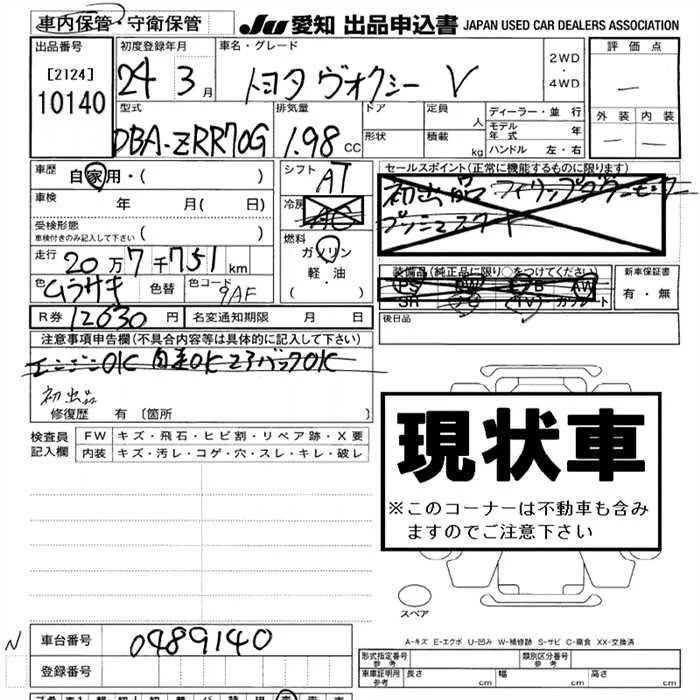 車内保管・守衛保管
JU 愛知 出品申込書 JAPAN USED CAR DEALERS ASSOCIATION
出品番号
[2124]
10140
初度登録年月
24 3月
車名・グレード
トヨタ ヴォクシー V
2WD
・
4WD
評価点
—
外装 内装
— —
型式
DBA-ZRR70G
排気量
1.98 CC
ドア
形状
定員 人
積載 kg
ディーラー・並行
モデル年式 年
ハンドル 左・右
車歴 自家用・( )
車検 年 月( 日)
受検形態
車検付きのみ記入して下さい ( )
走行 20万7千751km
色 ムラサキ 色替 色コード 9AF
R券 12630円 名変通知期限 月 日
シフト AT
冷房 AC
燃料
ガソリン
軽・油
( )
セールスポイント(正常に機能するものに限ります)
初出品
装備品(純正品に限り○をつけてください)
PS PW AB AW
SR ナビ TV カワシート
新車保証書
有・無
後日品
注意事項申告欄(不具合内容等は具体的に記入して下さい)
エンジンOK 自走OK 23バックOK
初出品
修復歴 有 〔箇所 〕
検査員記入欄
FW キズ・飛石・ヒビ割・リペア跡・X要
内装 キズ・汚レ・コゲ・穴・スレ・キレ・破レ
現状車
※このコーナーは不動車も含み
ますのでご注意下さい
スペア
A-キズ E-エクボ U-凹み W-補修跡 S-サビ C-腐食 XX-交換済
N
車台番号 0489140
登録番号
形式指定番号 参考
類別区分番号 参考
車庫証明用 参考 長さ cm 幅 cm 高さ cm